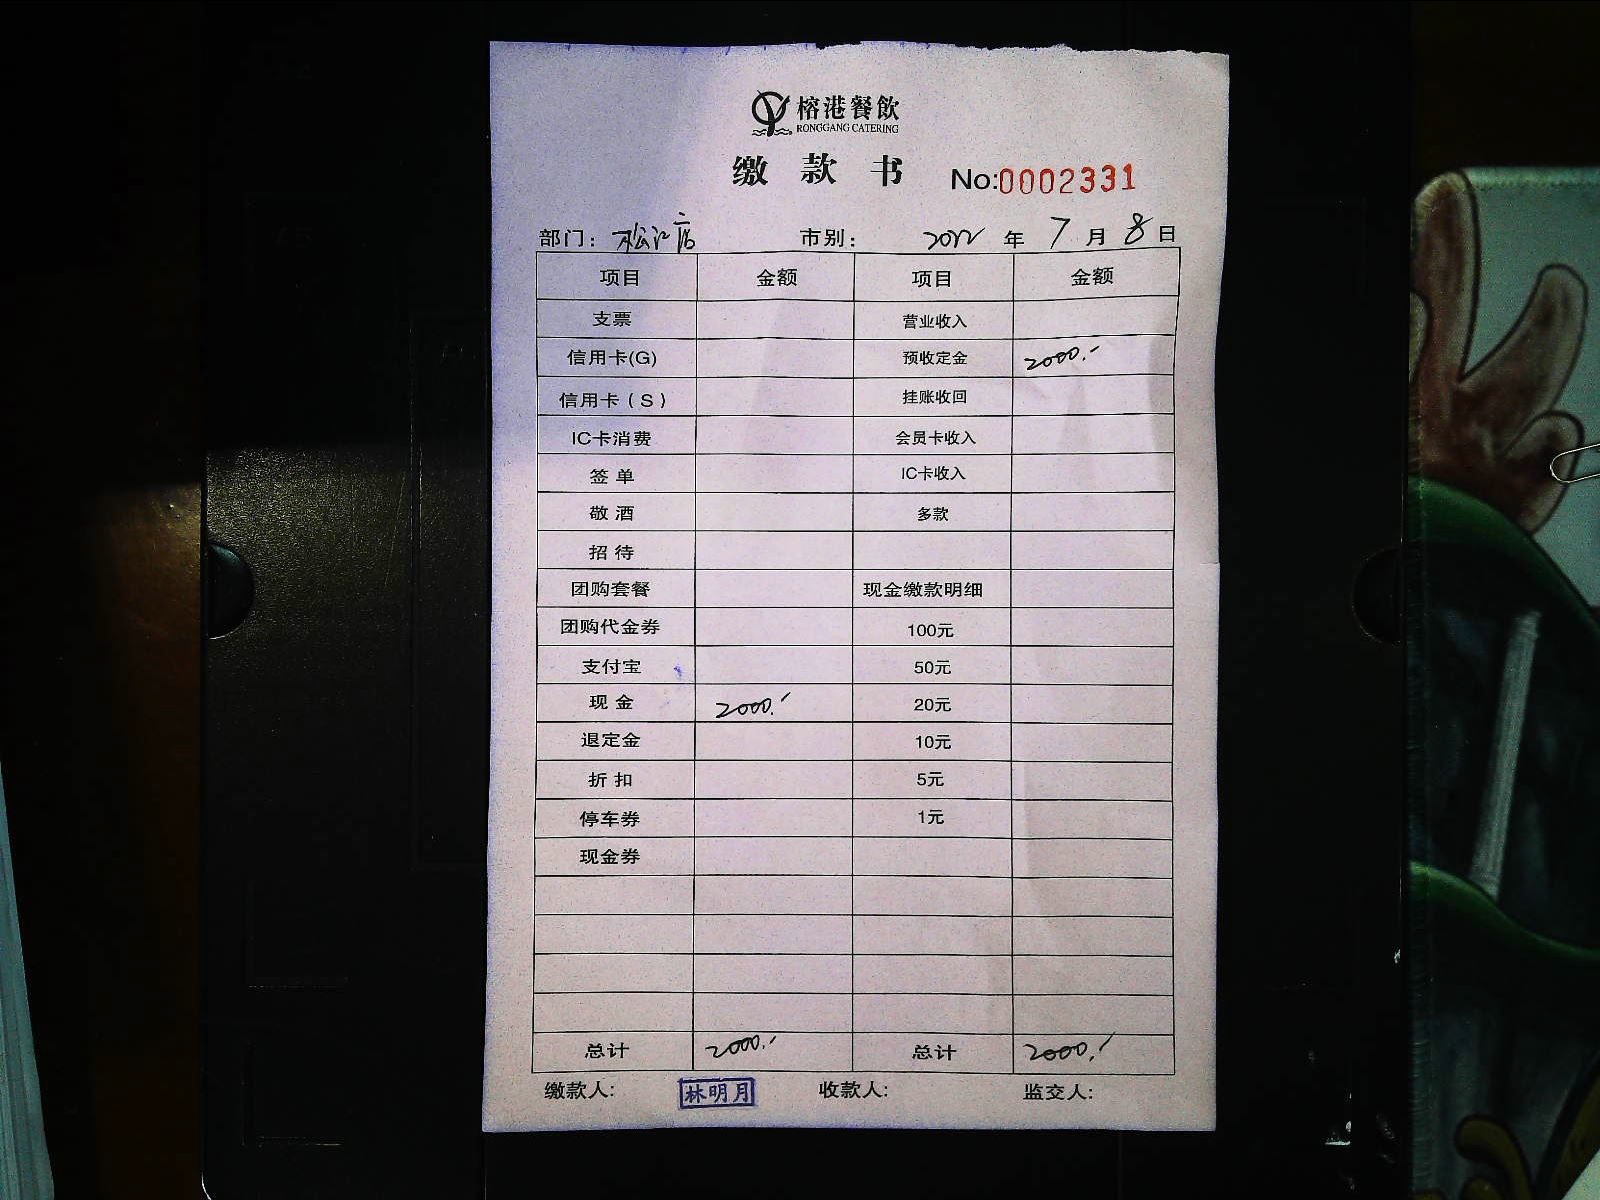 榕港餐飲
RONGGANG CATERING
缴款书 No:0002331
部门: 松江店 市别: 2022 年 7 月 8 日
项目 金额 项目 金额
支票 营业收入
信用卡(G) 预收定金 2000.-
信用卡(S) 挂账收回
IC卡消费 会员卡收入
签单 IC卡收入
敬酒 多款
招待
团购套餐 现金缴款明细
团购代金券 100元
支付宝 50元
现金 2000.- 20元
退定金 10元
折扣 5元
停车券 1元
现金券
总计 2000.- 总计 2000.-
缴款人: 林明月 收款人: 监交人: